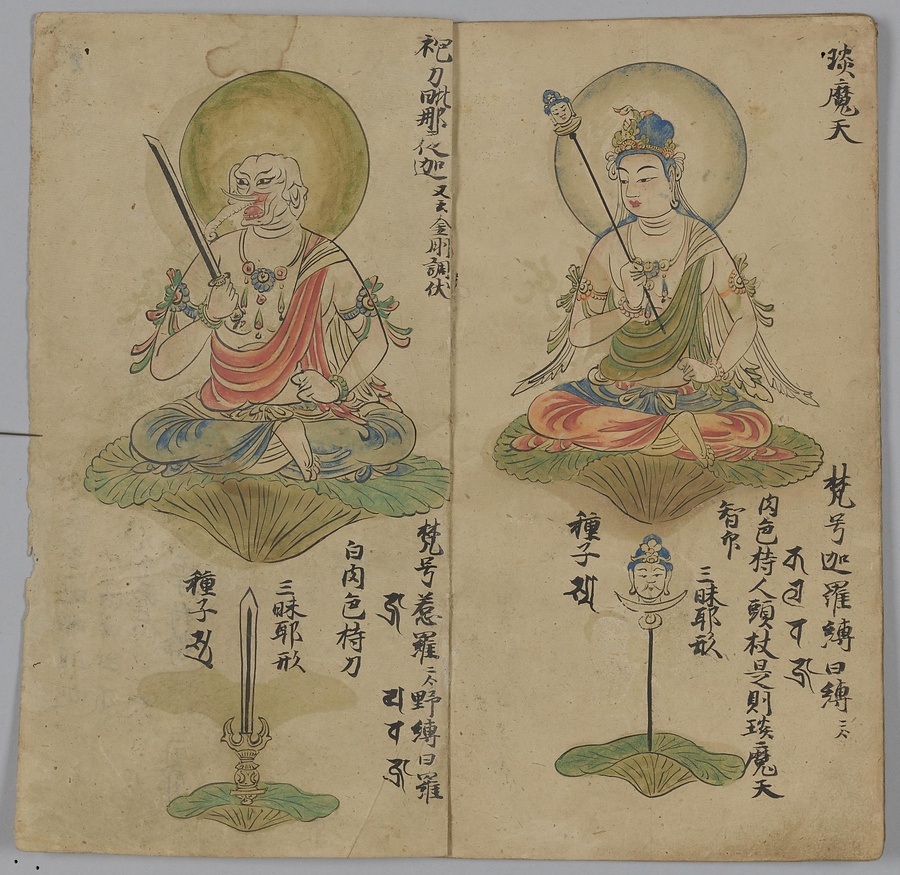 琰魔天
梵号迦羅縛曰縛二合
肉色持人頭杖是則琰魔天
智印
三昧耶形
種子
刀毗那夜迦又云金剛調伏
梵号惹羅二合野縛曰羅
白肉色持刀
三昧耶形
種子